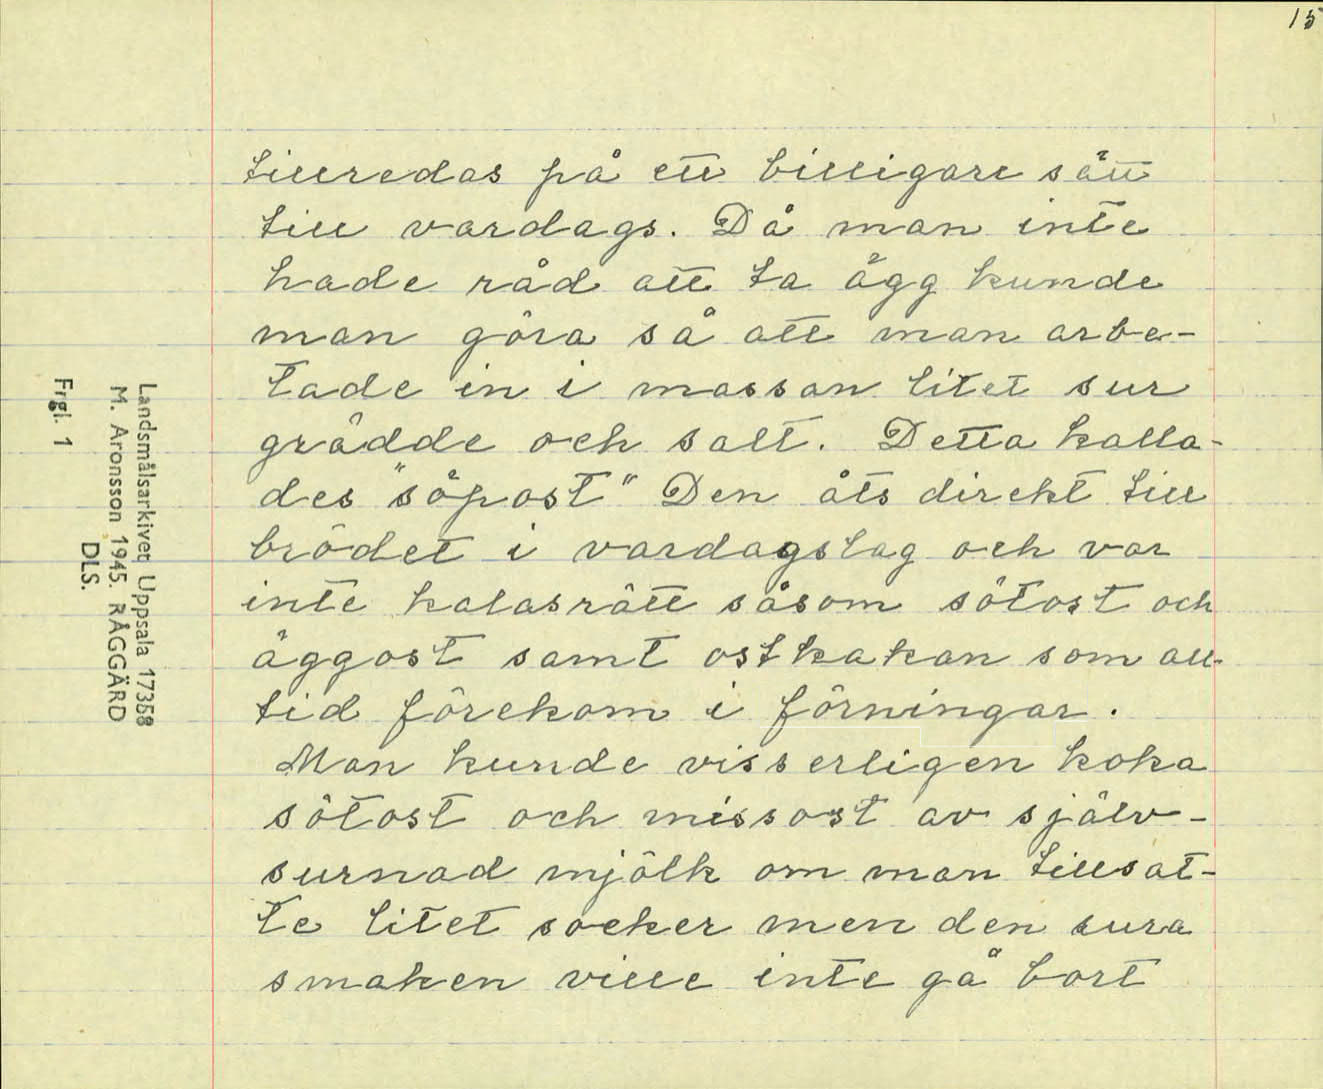 15
tillredas på ett billigare sätt
till vardags. Då man inte
hade råd att ta ägg kunde
man göra så att man arbe-
tade in i massan litet sur
grädde och salt. Detta kalla-
des "söpost" Den åts direkt till
brödet i vardagslag och var
inte kalasrätt såsom sötost och
äggost samt ostkakan som all-
tid förekom i förningar.
Man kunde visserligen koka
sötost och missost av själv-
surnad mjölk om man tillsat-
te litet socker men den sura
smaken ville inte gå bort
Landsmålsarkivet Uppsala 17358
M. Aronsson 1945. RÅGGÄRD
DLS.
Frgl. 1